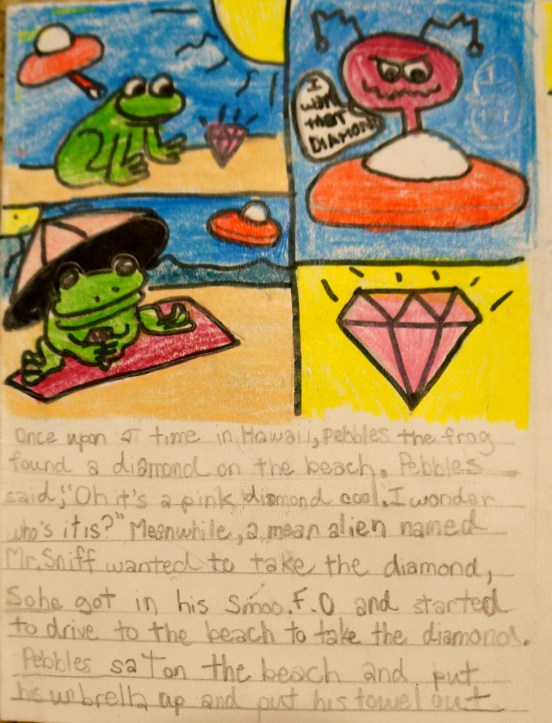 I
want
that
DIAMOND
Once upon a time in Hawaii, Pebbles the frog
found a diamond on the beach. Pebbles
said, "Oh it's a pink diamond cool. I wonder
who's it is?" Meanwhile, a mean alien named
Mr. Sniff wanted to take the diamond,
So he got in his Smoo. F.O and started
to drive to the beach to take the diamond.
Pebbles sat on the beach and put
his unbrella up and put his towel out